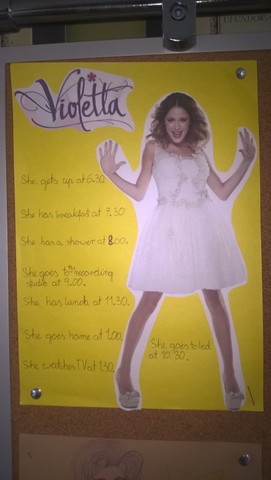 ECUADOR
Violetta
She gets up at 6.30
She has breakfast at 7.30
She has a shower at 8.00.
She goes to the recording
studio at 9.00.
She has lunch at 11.30.
She goes home at 1.00.
She watches TV at 1.30.
She goes to bed
at 10.30.